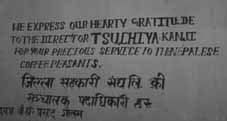 WE EXPRESS OUR HEARTY GRATITUDE
TO THE DIRECTOR TSUCHIYA KANJI
FOR YOUR PRECIOUS SERVICE TO THE NEPALESE
COFFEE PEASANTS.
जिल्ला सहकारी संघ लि. की
सञ्चालक पदाधिकारी हरु